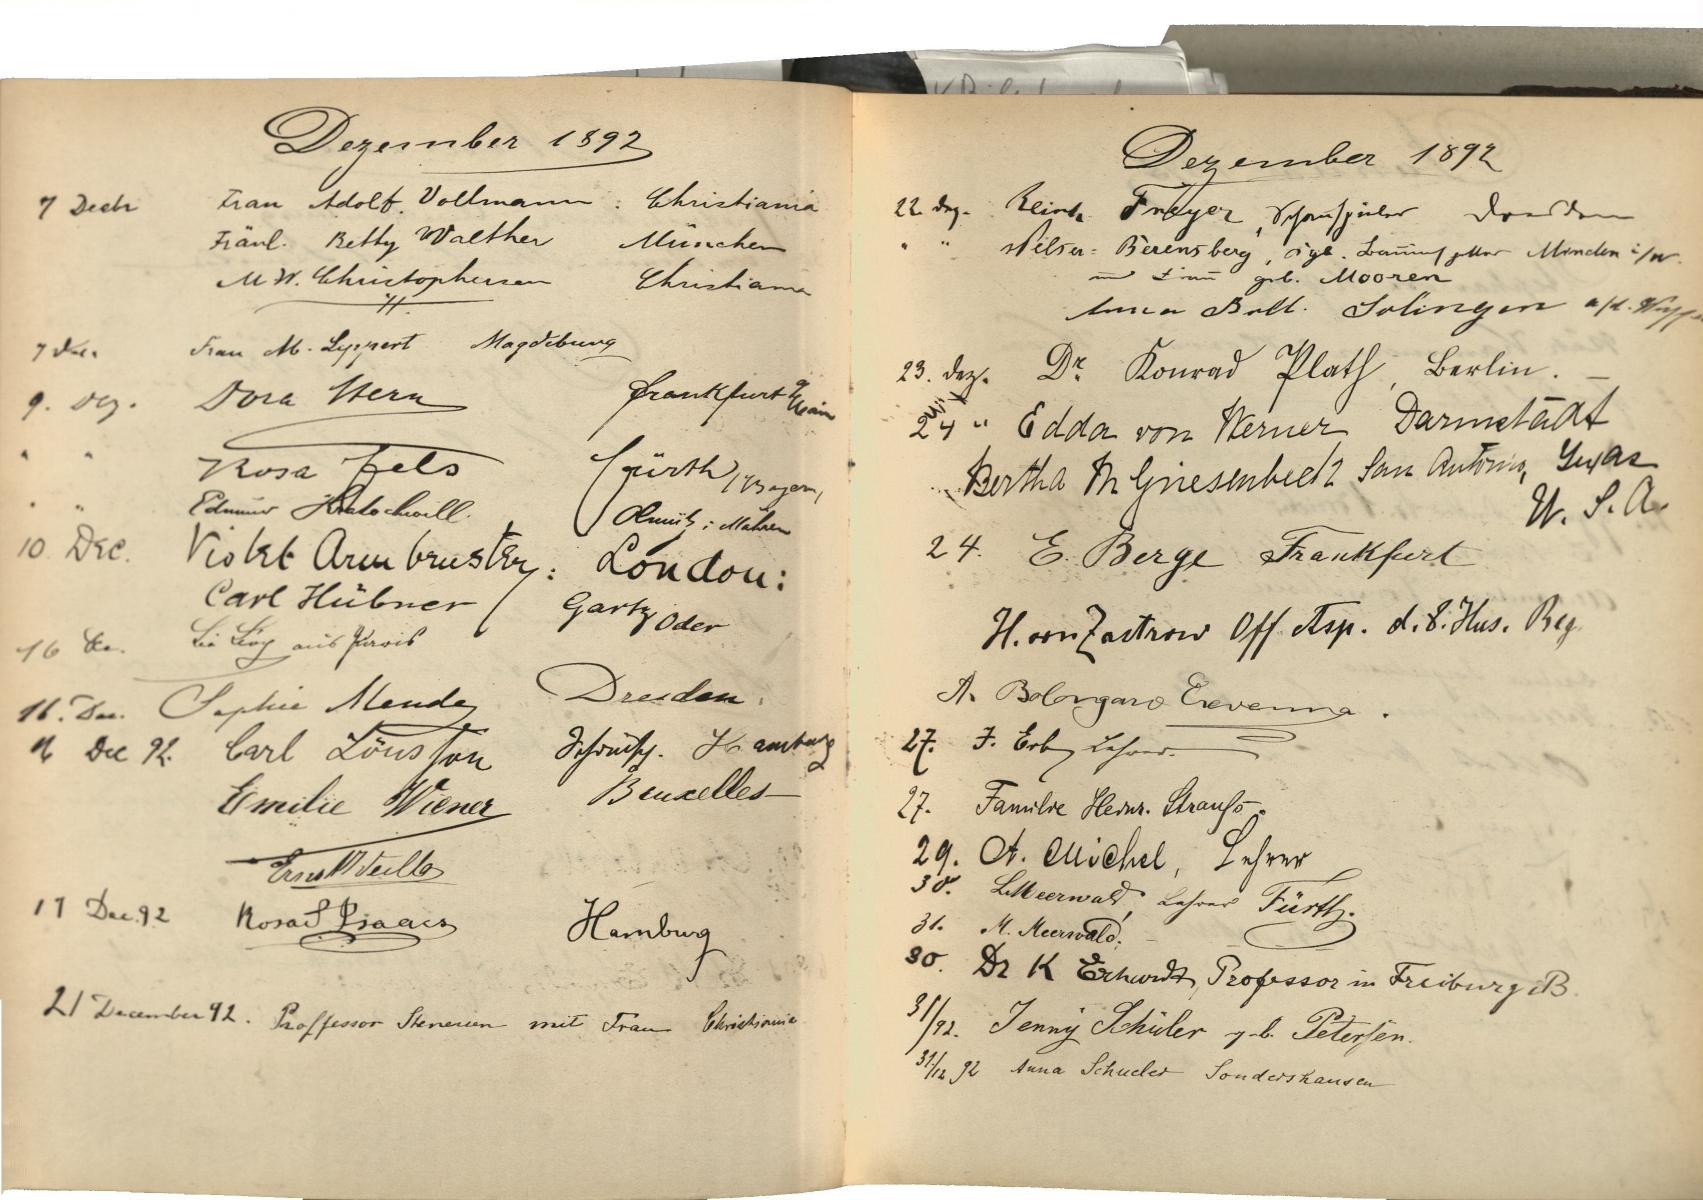 Dezember 1892
7 Decbr Frau Adolf. Vollmann. Christiania
Fräul. Betty Walther München
M. W. Christophersen Christiania
7 Dec. Frau M. Lippert Magdeburg
9. Dez. Dora Stern Frankfurt a/Main
" " Rosa Fels Fürth, (Bayern)
" " Edmund Kratochwill. Olmütz i/Mähren
10 DEC. Violet Armbruster: London:
Carl Hübner Gartz Oder
16 De. aus
16. Dec. Sophie Mende Dresden.
16 Dec 92. Carl Hamburg
Emilie Wiener Bruxelles
17 Dec. 92 Rosa S Isaacs Hamburg
21 December 92. Proffessor mit Frau Christiania
Dezember 1892
22. Dez. Freyer, Schauspieler Dresden
" " Berensberg, Kgl. Minden i/W.
u Frau geb. Mooren
Anna Boll. Solingen a/d.
23. Dez. Dr. Konrad Plath, Berlin.
24 " Edda von Werner Darmstadt
Bertha M Griesenbeck San Antonio, Texas
U. S. A.
24. E. Berge Frankfurt
H. von Zastrow Off. Asp. d. 8. Hus. Reg.
A. Bolongaro Crevenna.
27. J. Erb, Lehrer.
27. Familie Heinr. Strauß.
29. A. Michel, Lehrer
30. L. Meerwald, Lehrer Fürth.
31. M. Meerwald.
30. Dr K Professor in Freiburg i B.
31/92. Jenny Schüler geb. Petersen.
31/12 92 Anna Schueler Sondershausen